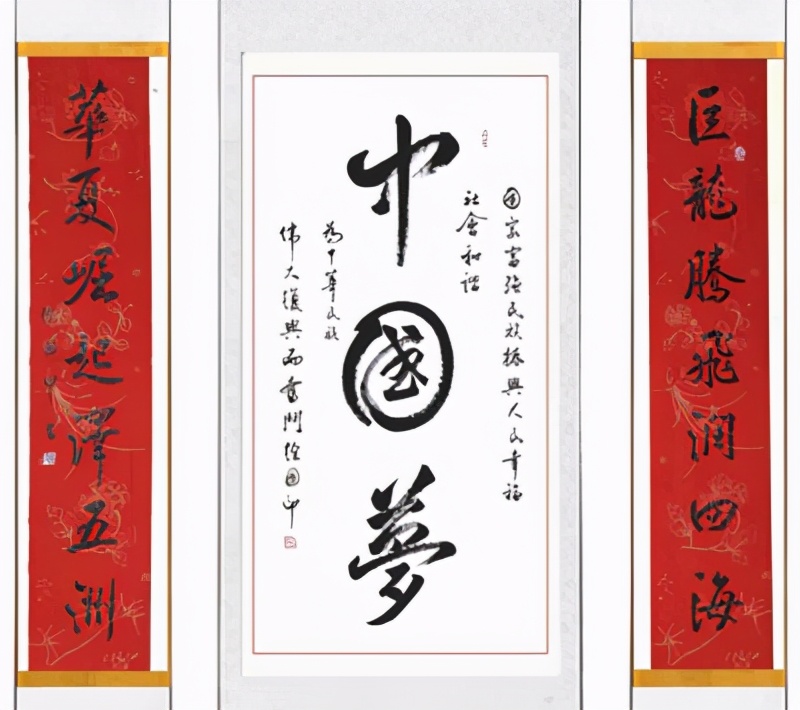 巨龍騰飛潤四海
中國夢
國家富强民族振興人民幸福
社會和諧
為中華民族
偉大復興而奮鬥
華夏崛起澤五洲